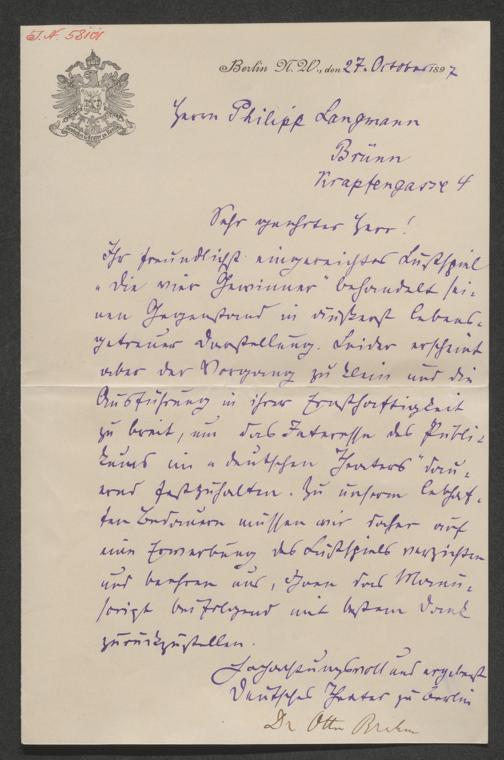 J. N. 58101
Berlin N. W., den 27. October 1897
Herrn Philipp Langmann
Brünn
Krapfengasse 4
Sehr geehrter Herr!
Ihr freundlichst eingereichtes Lustspiel
„Die vier Gewinner“ behandelt sei-
nen Gegenstand in äußerst lebens-
getreuer Darstellung. Leider erscheint
aber der Vorgang zu klein und die
Ausführung in ihrer Ernsthaftigkeit
zu breit, um das Interesse des Publi-
kums im „Deutschen Theaters“ dau-
ernd festzuhalten. Zu unserm lebhaf-
ten Bedauern müssen wir daher auf
eine Erwerbung des Lustspiels verzichten
und beehren uns, Ihnen das Manu-
script beifolgend mit bestem Dank
zurückzustellen.
Hochachtungsvoll und ergebenst
Deutsches Theater zu Berlin
Dr Otto Brahm